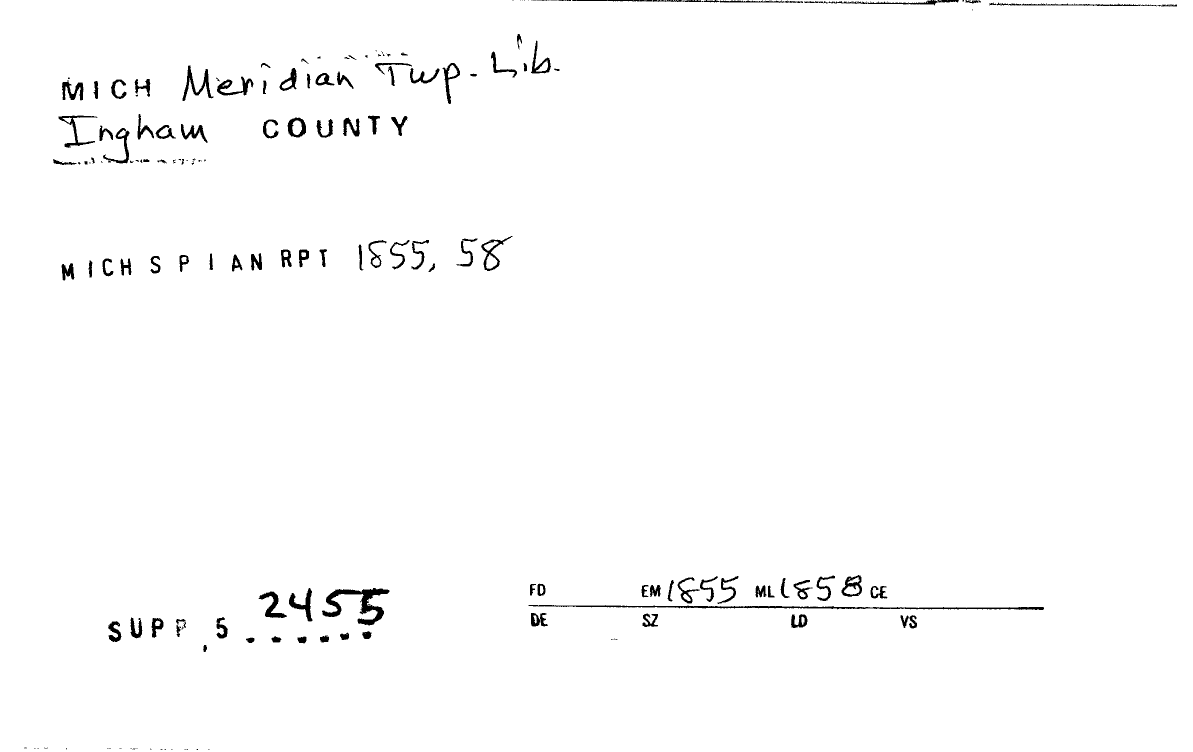 MICH Meridian Twp. Lib.
Ingham COUNTY
MICH S P I AN RPT 1855, 58
SUPP, 5 2455
FD EM 1855 ML 1858 CE
DE SZ LD VS